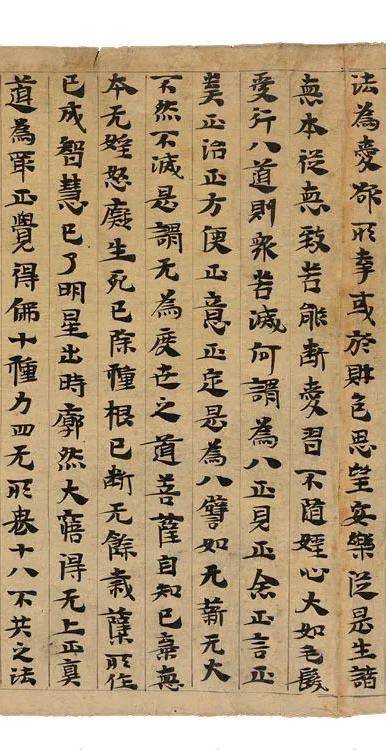 法為愛欲所牽或於財色思望安樂從是生諸
惡本從惡致苦能斷愛習不隨婬心大如毛髮
受行八道則衆苦滅何謂為八正見正念正言正
業正治正方便正意正定是為八譬如无薪火
不然不滅是謂无為度世之道菩薩自知已棄惡
本无婬怒癡生死已除種根已斷无餘栽蘖所作
已成智慧已了明星出時廓然大寤得无上正真
道為最正覺得佛十種力四无所畏十八不共之法